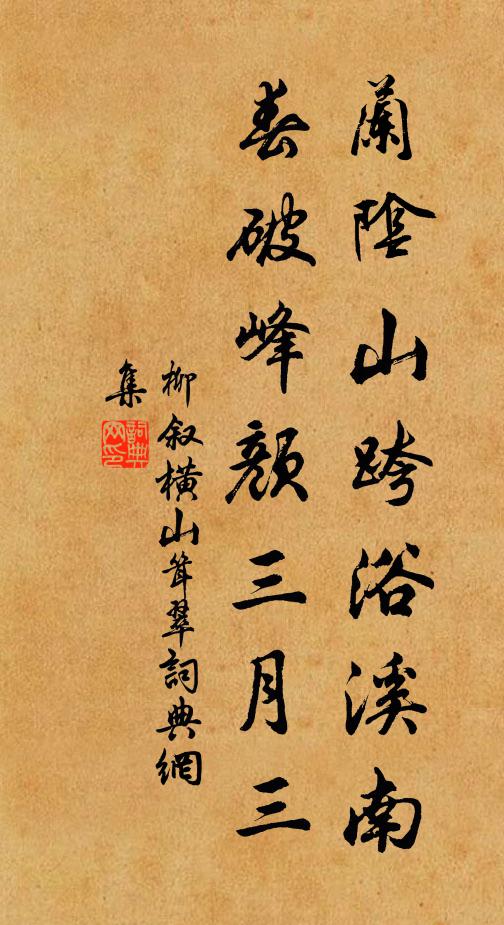 蘭陰山跨浴溪南
春破峰顏三月三
柳叙橫山聳翠詞典網
集
詞典
网印